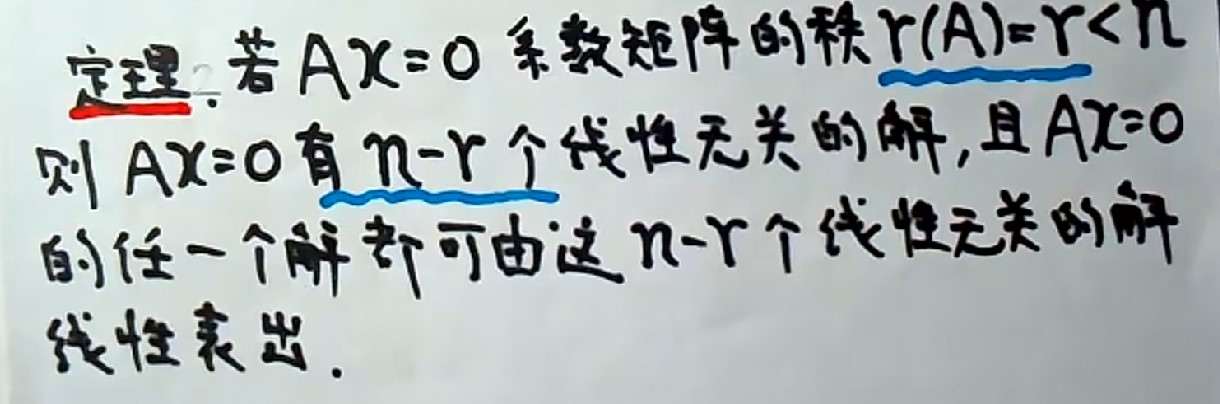 定理. 若 Ax=0 系数矩阵的秩 r(A)=r<n
则 Ax=0 有 n-r 个线性无关的解,且 Ax=0
的任一个解都可由这 n-r 个线性无关的解
线性表出.